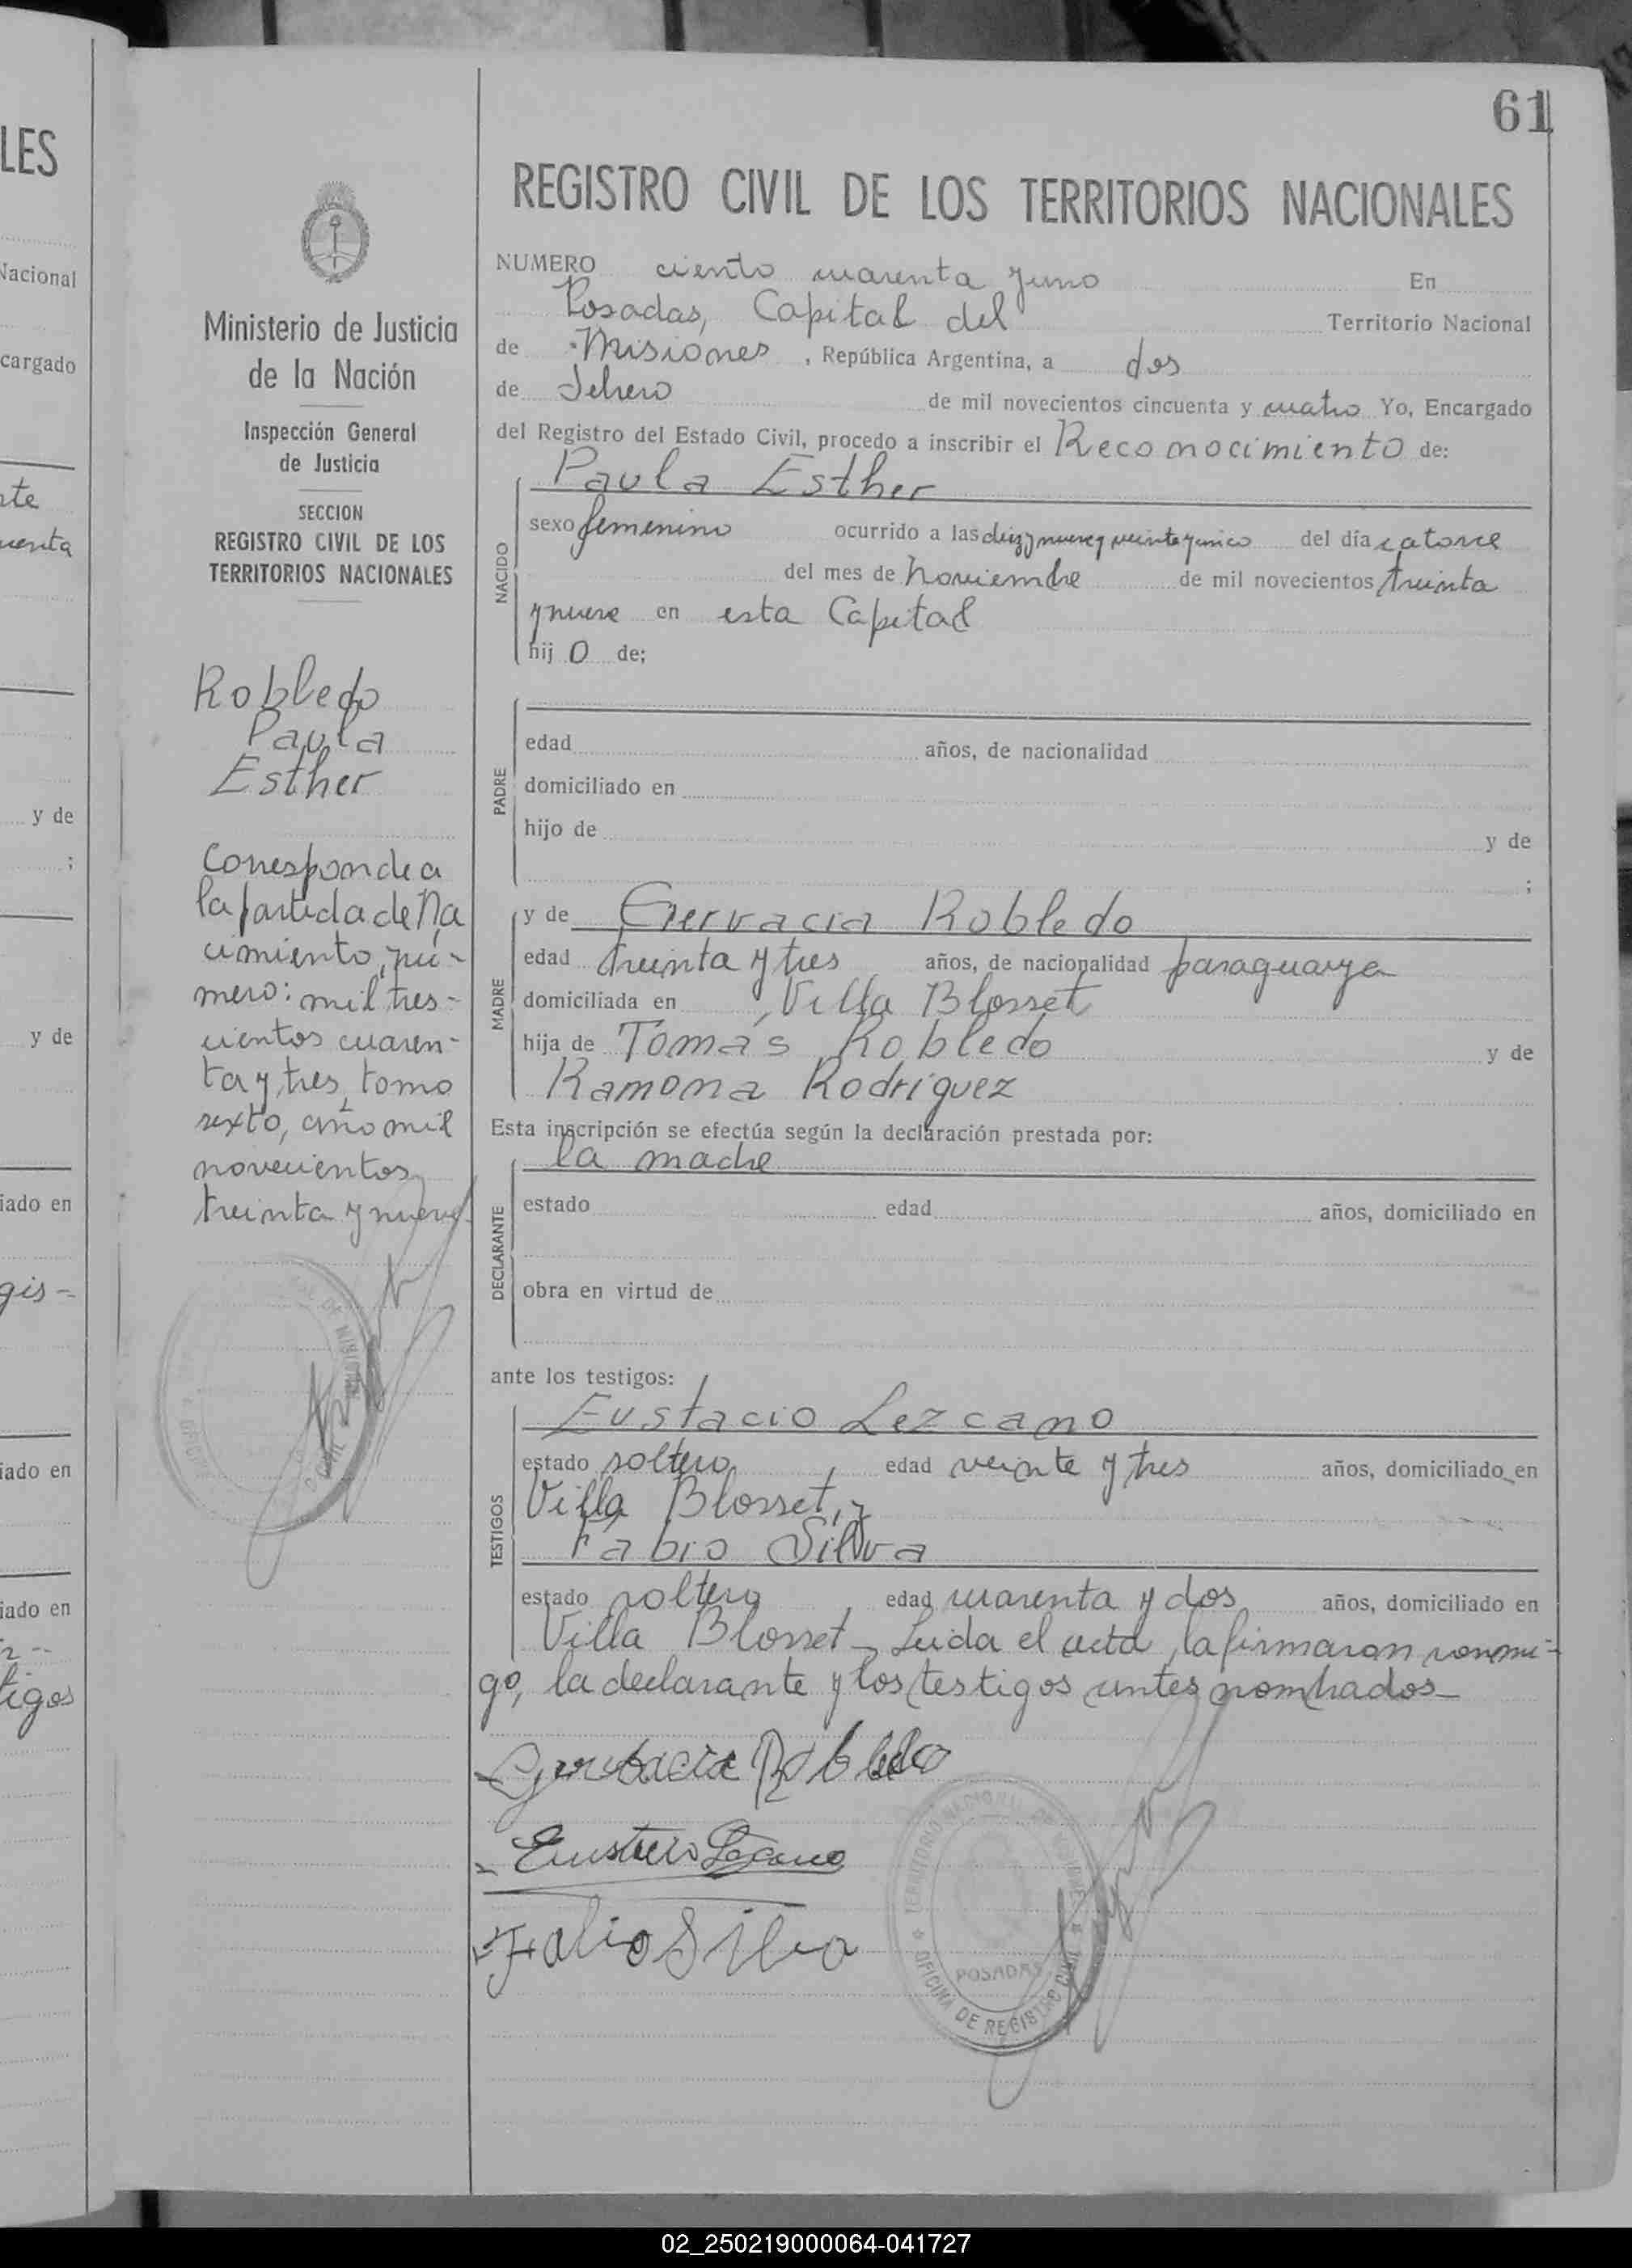 LES
Nacional
cargado
y de
;
y de
iado en
gis-
iado en
iado en
tigos
61
Ministerio de Justicia
de la Nación
Inspección General
de Justicia
SECCION
REGISTRO CIVIL DE LOS
TERRITORIOS NACIONALES
Robledo
Paula
Esther
Corresponde a
la partida de Na
cimiento, nú-
mero: mil tres-
cientos cuaren-
ta y tres, tomo
sexto, año mil
novecientos
treinta y nueve.
REGISTRO CIVIL DE LOS TERRITORIOS NACIONALES
NUMERO ciento cuarenta y uno En
Posadas, Capital del Territorio Nacional
de Misiones, República Argentina, a dos
de Febrero de mil novecientos cincuenta y cuatro Yo, Encargado
del Registro del Estado Civil, procedo a inscribir el Reconocimiento de:
Paula Esther
NACIDO
sexo femenino ocurrido a las diez y nueve y veinte y cinco del día catorce
del mes de Noviembre de mil novecientos treinta
y nueve en esta Capital
hij O de;
PADRE
edad años, de nacionalidad
domiciliado en
hijo de y de
;
MADRE
y de Gervacia Robledo
edad treinta y tres años, de nacionalidad paraguaya
domiciliada en Villa Blosset
hija de Tomás Robledo y de
Ramona Rodríguez
Esta inscripción se efectúa según la declaración prestada por:
la madre
DECLARANTE
estado edad años, domiciliado en
obra en virtud de
ante los testigos:
Eustacio Lezcano
TESTIGOS
estado soltero, edad veinte y tres años, domiciliado en
Villa Blosset, y
Fabio Silva
estado soltero, edad cuarenta y dos años, domiciliado en
Villa Blosset - Leida el acta, la firmaron conmi-
go, la declarante y los testigos antes nombrados-
Gervacia Robledo
Eustacio Lezcano
Fabio Silva
TERRITORIO NACIONAL DE MISIONES
POSADAS
OFICINA DE REGISTRO CIVIL
02_250219000064-041727